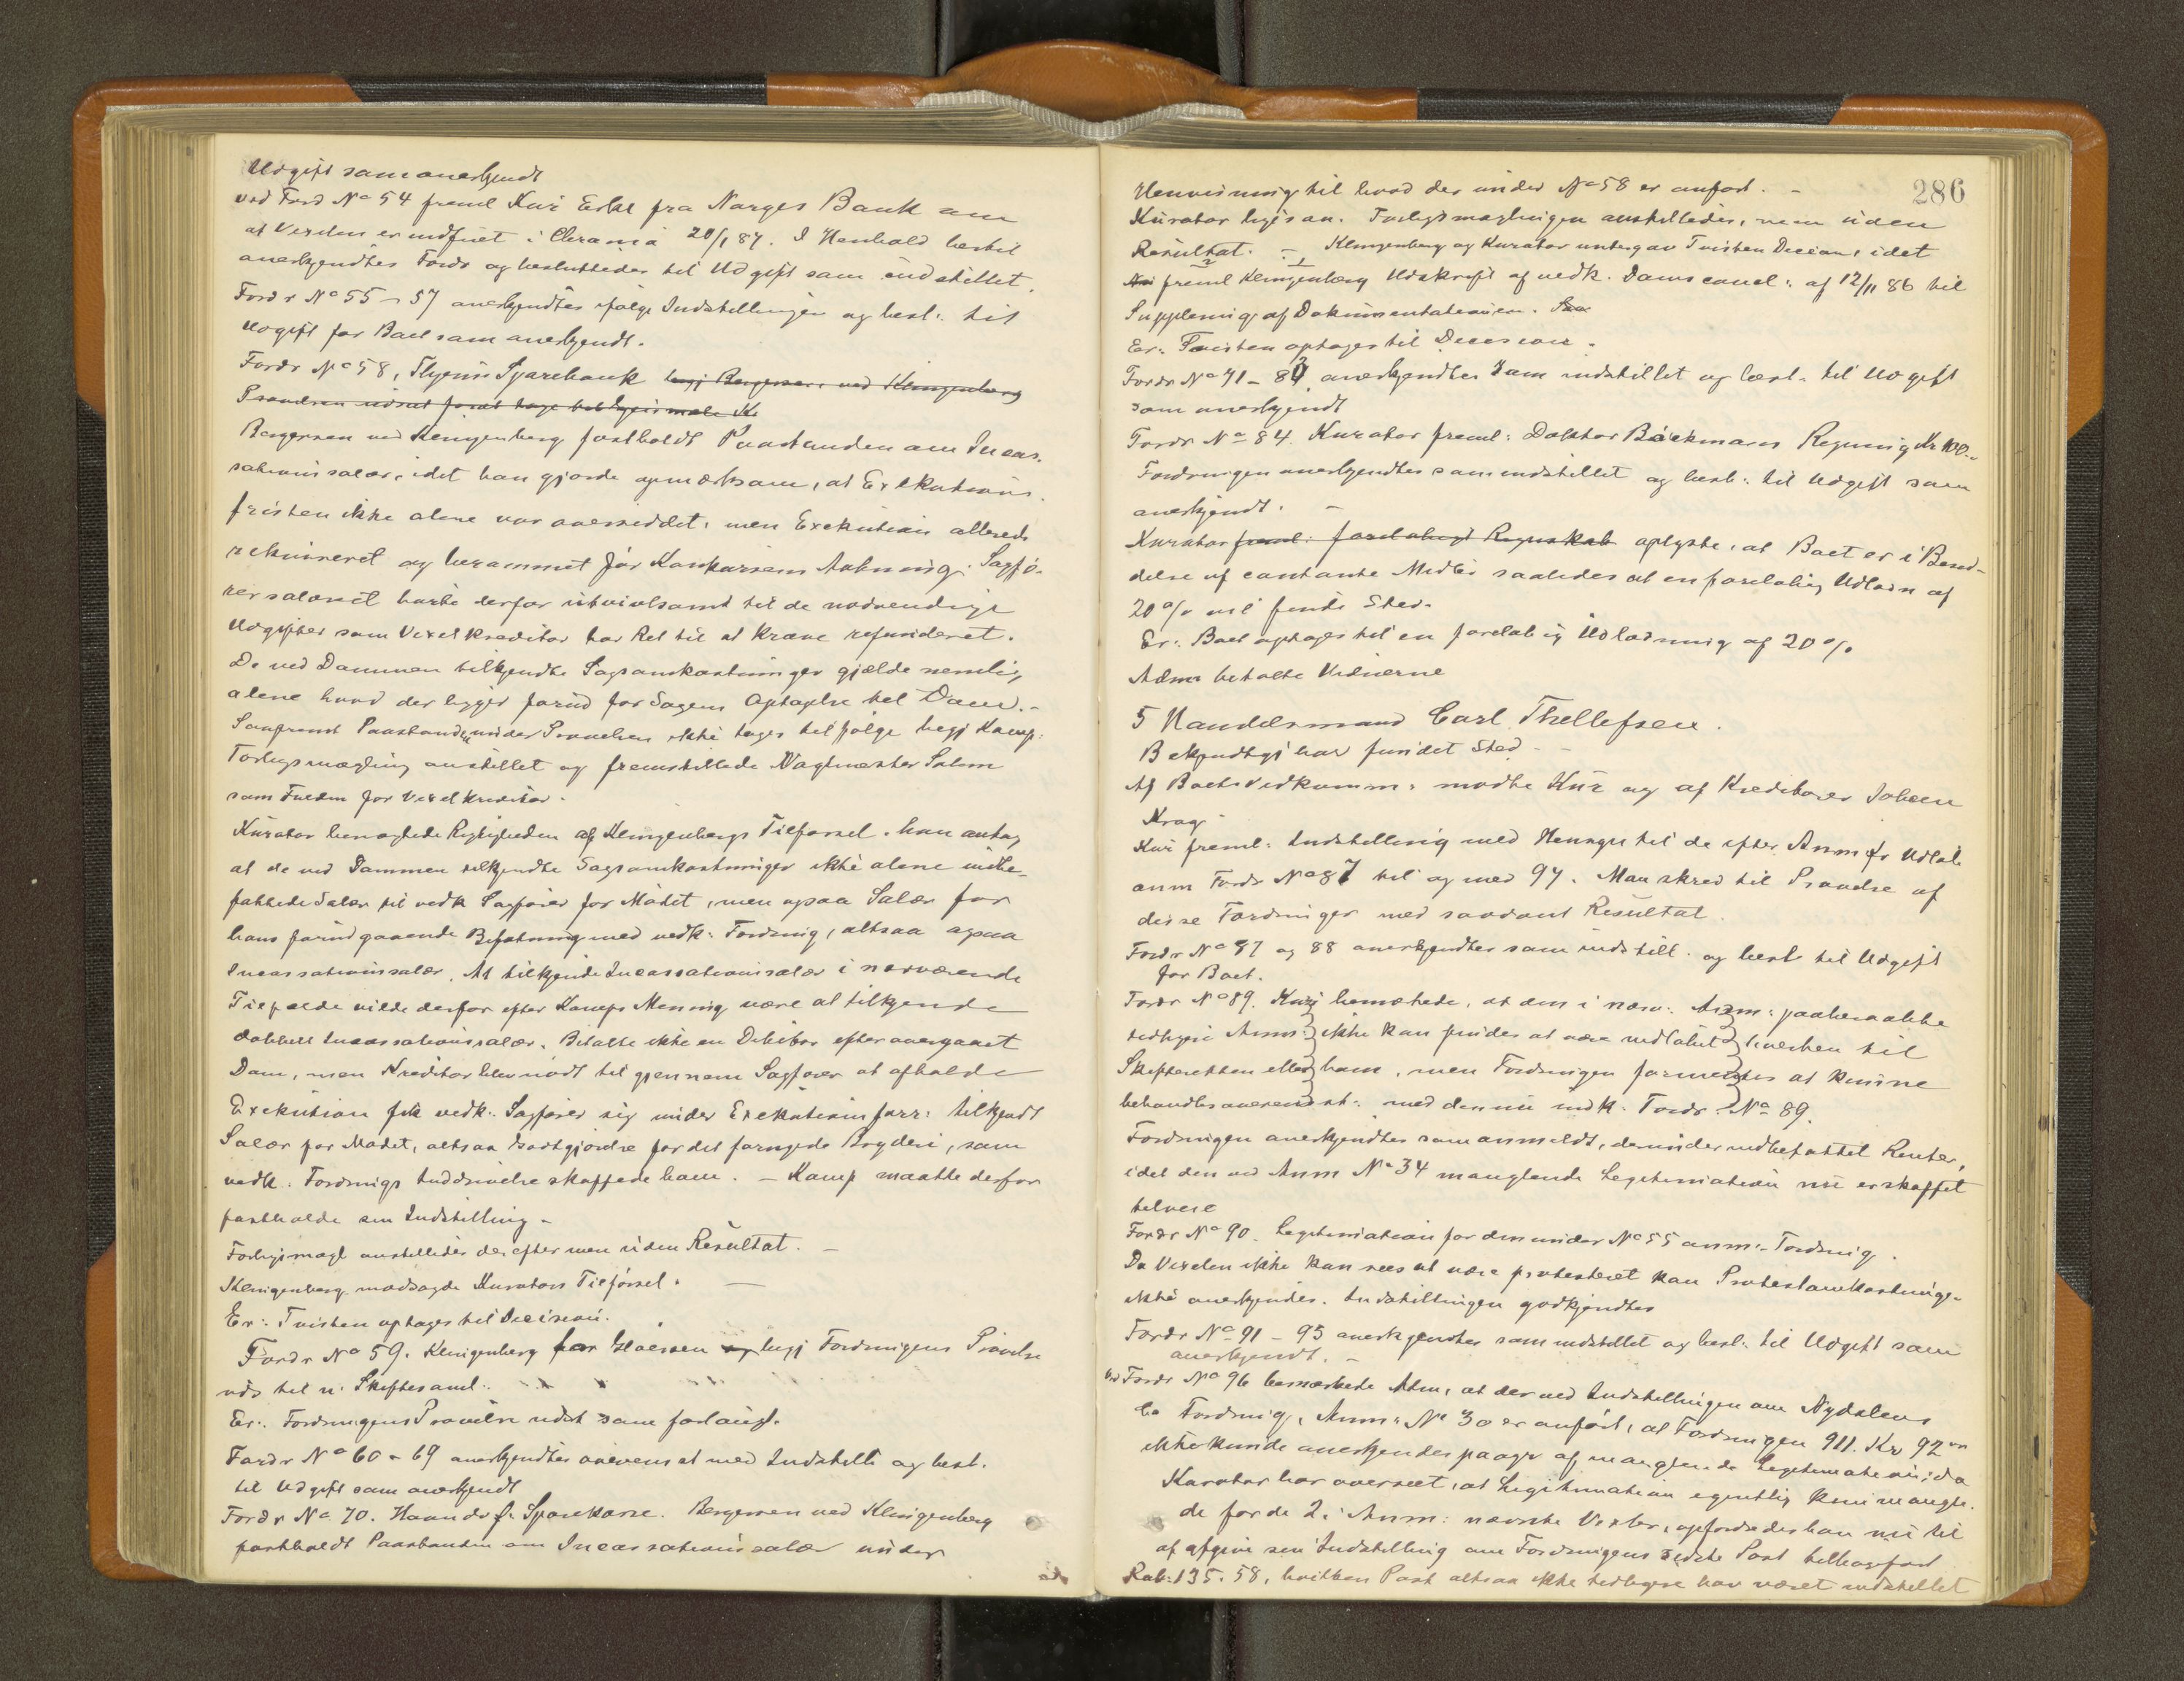 Udgift som anerkjendt
ved Ford No 54 freml Kur Erkl fra Norges Bank om
at Vexelen er indfriet i Chrania 20/1 87. I Henhold hertil
anerkjendtes Fordr og besluttedes til Udgift som indstillet.
Fordr No 55 - 57 anerkjendtes ifølge Indstillingen og besl: til
Udgift for Boet som anerkjendt.
Fordr No 58, Thyens Sparebank begj Bergersen ved Klingenberg
Prøvelsen udsat forat tage Forligsmæl Kl
Bergersen ved Klingenberg fastholdt Paastanden om Incas-
sationssalær, idet han gjorde opmærksom, at Exekutions-
fristen ikke alene var oversiddet, men Exekution allerede
rekvireret og berammet før Konkursens Aabning. Sagfø-
rersalæret hørte derfor utvivlsomt til de nødvendige
Udgifter som Vexelkreditor har Ret til at kræve refunderet.
De ved Dommen tilkjendte Sagsomkostninger gjælde nemlig
alene hvad der ligger forud for Sagens Optagelse til Dom.-
Saafremt Paastanden under Prøvelsen ikke tages tilfølge begj Kamp:
Forligsmægling anstillet og fremstillede Vagtmester Salem
som Fuldm for Vexelkreditor.
Kurator benægtede Rigtigheden af Klingenbergs Tilførsel. han antog
at de ved Dommen tilkjendte Sagsomkostninger ikke alene indbe-
fattede Salær til vedk Sagfører for Mødet, men ogsaa Salær for
hans forudgaaende Befatning med vedk: Fordring, altsaa ogsaa
Incassationssalær. At tilkjende Incassationssalær i nærværende
Tilfælde vilde derfor efter Kamps Mening være at tilkjende
dobbelt Incassationssalær. Betalte ikke en Debitor efter overgaaet
Dom, men Kreditor blev nødt til gjennem Sagfører at afholde
Exekution fik vedk: Sagfører sig under Exekutionsforr: tilkjendt
Salær for Mødet, altsaa Godtgjørelse for det fornyede Bryderi, som
vedk. Fordrings Inddrivelse skaffede ham. - Kamp maatte derfor
fastholde sin Indstilling -
Forligsmægl anstilledes derefter men uden Resultat. -
Klingenberg modsagde Kurators Tilførsel. -
Er: Tvisten optages til Decision.
Fordr No 59. Klingenberg for Haersen og begj Fordringens Prøvelse
uds til n. Skiftesaml:
Er: Fordringens Prøvelse udsat som forlangt.
Fordr No 60 - 69 anerkjendtes overensst med Indstill og besl.
til Udgift som anerkjendt
Fordr No 70. Haandv f. Sparekasse. Bergersen ved Klingenberg
fastholdt Paastanden om Incassationssalær under
286
Henvisning til hvad der under No 58 er anført. -
Kurator ligesaa. Forligsmæglingen anstilledes, men uden
Resultat. - Klingenberg og Kurator undergav Tvisten Decion, idet
freml Klingenberg Udskrift af vedk. Domsconcl: af 12/11 86 til
Supplering af Dokumentationen.
Er: Tvisten optages til Decision.
Fordr No 71 - 83 anerkjendtes som indstillet og besl. til Udgift
som anerkjendt
Fordr No 84. Kurator freml: Doktor Bäckmans Regning Kr 100.-
Fordringen anerkjendtes som indstillet og besl: til Udgift som
anerkjendt. -
Kurator freml: foreløbigt Regnskab oplyste, at Boet er i Besid-
delse af contante Midler saaledes at en foreløbig Udlodn af
20 % vil finde Sted.
Er: Boet optages til en foreløbig Udlodning af 20 %
Adm: betalte Vidnerne
5 Handelsmand Carl Thellefsen.
Bekjendtgj har fundet Sted. -
Af Boets Vedkomm: mødte Kur og af Kreditorer Johan
Krag.
Kur freml: Indstilling med Hensyn til de efter Anm fr Udløb
anm Fordr No 87 til og med 97. Man skred til Prøvelse af
disse Fordringer med saadant Resultat.
Fordr No 87 og 88 anerkjendtes som indstill. og besl til Udgift
for Boet.
Fordr No 89. Kur bemærkede, at den i nærv: Anm: paaberaabte
tidligere Anm: ikke kan findes at være indløbet hverken til
Skifteretten eller ham, men Fordringen formentes at kunne
behandles overensst: med den nu indk. Fordr: No 89.
Fordringen anerkjendtes som anmeldt, derunder indbefattet Renter,
idet den ved Anm No 34 manglende Legitimation nu er skaffet
tilveie
Fordr No 90. Legitimation for den under No 55 anm: Fordring.
Da Vexelen ikke kan sees at være protesteret kan Protestomkostninger
ikke anerkjendes. Indstillingen godkjendtes
Fordr No 91 - 95 anerkjendtes som indstillet og besl: til Udgift som
anerkjendt. -
Ved Fordr No 96 bemærkede Adm, at der ved Indstillingen om Nydalens
Co Fordring, Anm: No 30 er anført, at Fordringen 911. Kr 92 øre
ikke kunde anerkjendes paagr af manglende Legitimation; da
Kurator har overseet, at Legitimation egentlig kun mangle-
de for de 2 i Anm: nævnte Vexler, opfordredes han nu til
at afgive sin Indstilling om Fordringens sidste Post tilbageført
Rab: 135.58, hvilken Post altsaa ikke tidligere har været indstillet